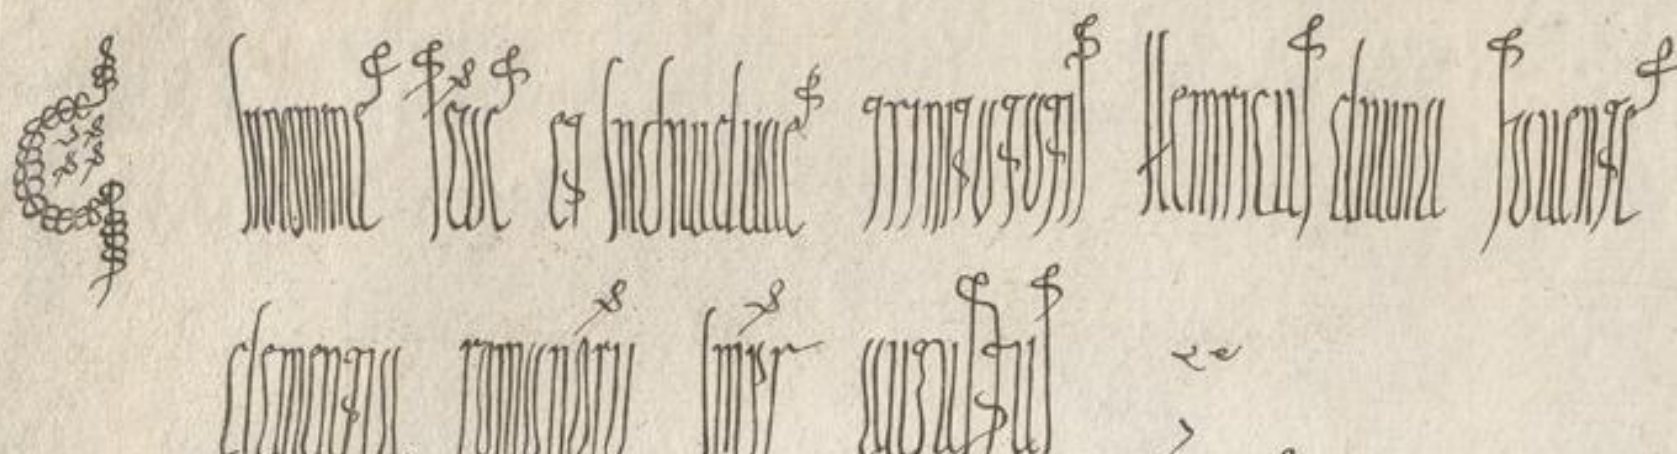 In nomine sc̄e et individue trinitatis Heinricus divina favente
clementia romanorū imp̄r augustus